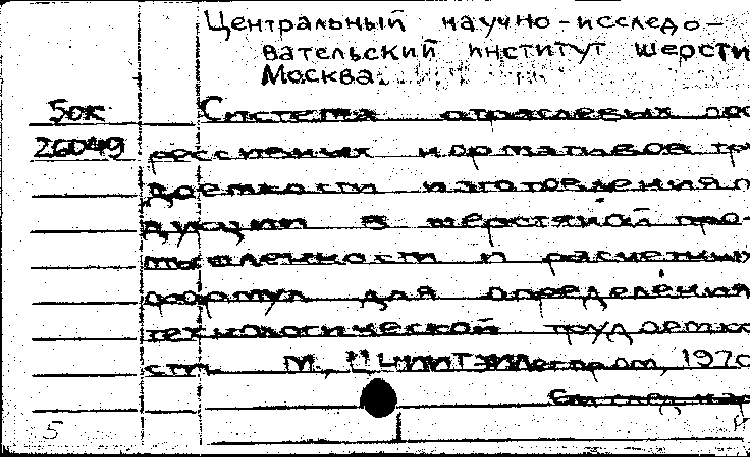 Центральный научно-исследо-
вательский институт шерсти
Москва.
5ок Система отраслевых про
26049 грессивных нормативов тру
доемкости изготовления п
дукции в шерстяной про-
мышленности и расчетных
формул для определения
технологической трудоемко
сти. М., ЦНИИТЭИлегпром, 197
См след
5